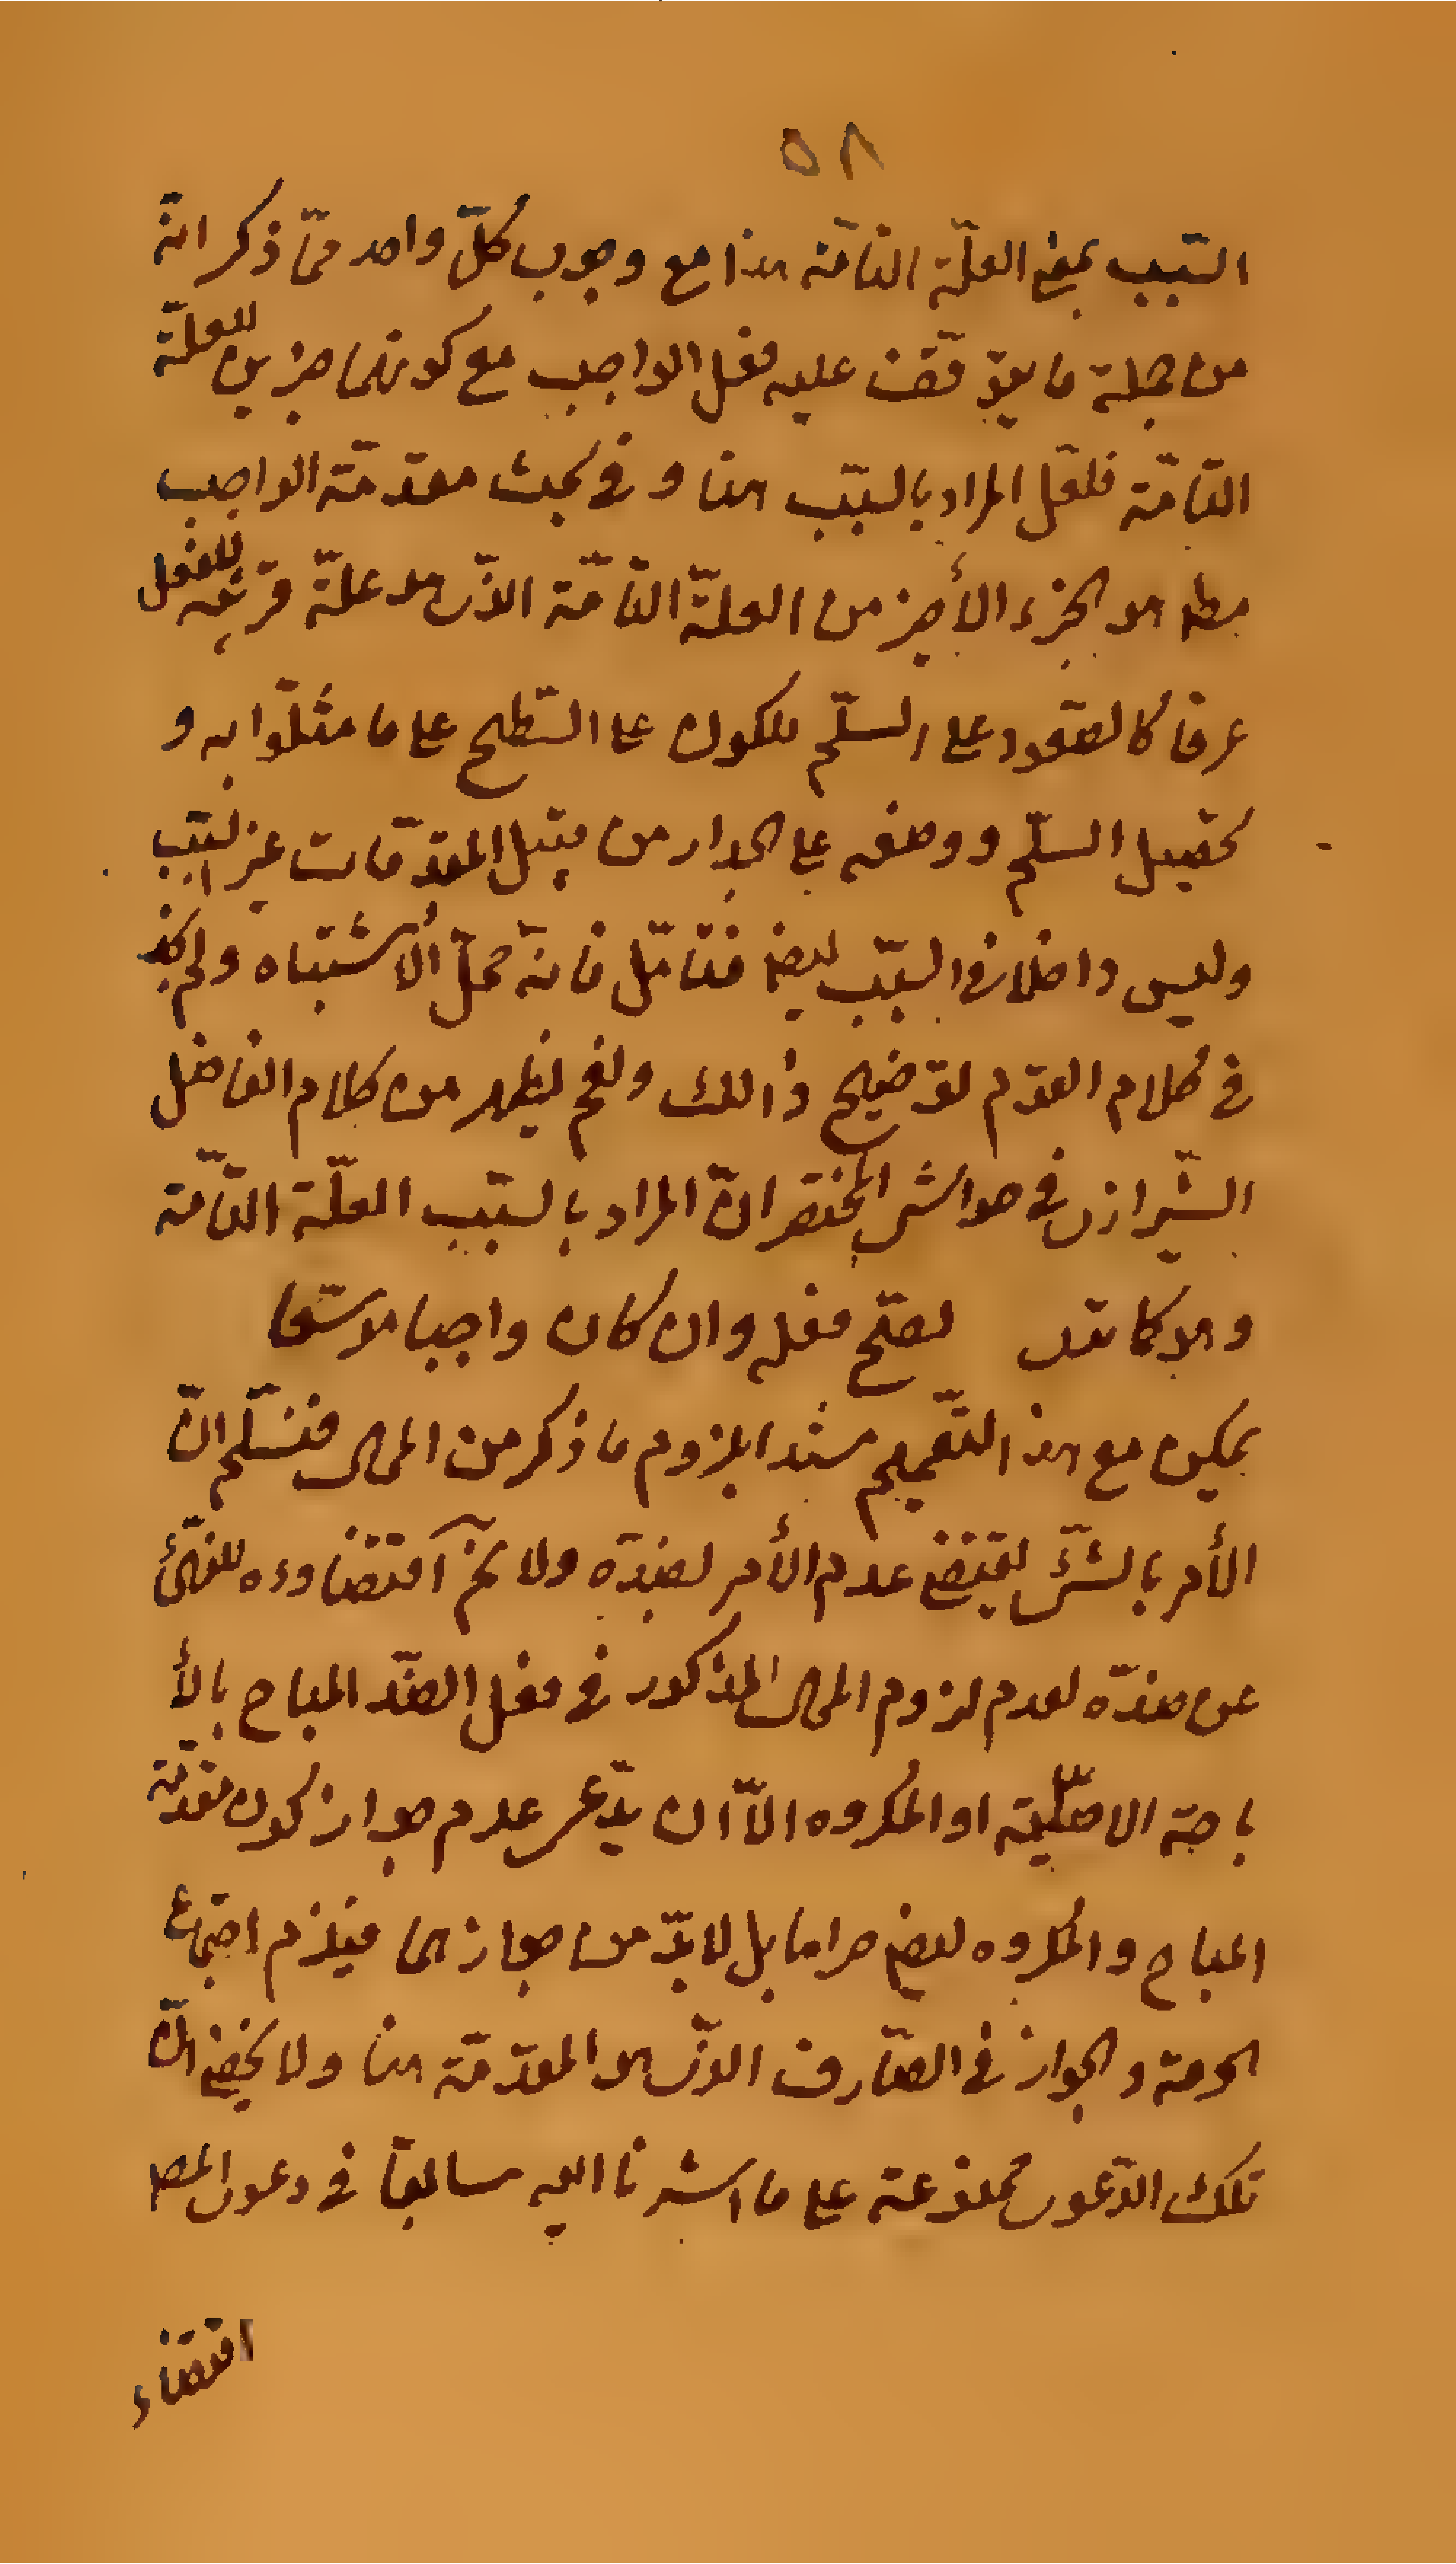 ٥٨
السّبب بمعنى العلّة التامّة هذا مع وجوب كلّ واحد ممّا ذكر انّه
من جملة ما يتوقّف عليه فعل الواجب مع كونهما جزئين للعلّة
التامّة فلعلّ المراد بالسّبب هنا و في بحث مقدّمة الواجب
مط هو الجزء الأخير من العلّة التّامّة الذى هو علّة قريبة للفعل
عرفا كالصّعود على السّلّم للكون على السّطح على ما مثّلوا به و
تحصيل السلّم و وضعه على الجدار من قبيل المقدّمات غير السّبب
وليس داخلا فى السّبب ايضا فتامّل فانّه محلّ الأشتباه ولم يذكر
فى كلام القوم توضيح ذالك ونعم يظهر من كلام الفاضل
الشّيرازى فى حواشى المختصر انّ المراد بالسّبب العلّة التّامّة
وهو كما ترى يصحّ فعله وان كان واجبا موسّعا
يمكن مع هذا التّعميم مستندا بلزوم ما ذكر من المحال فنسلّم انّ
الأمر بالشّئ يقتضى عدم الأمر لضدّه ولا نم اقتضاءه للنّهى
عن ضدّه لعدم لزوم المحال المذكور فى فعل الضّد المباح بالأ
باحة الاصليّة او المكروه الّا ان يدّعى عدم جواز كون مقدّمة
المباح و المكروه ايضا حراما بل لا بدّ من جوازها فيلزم اجتماع
الحرمة و الجواز فى الصّارف الذى هو المقدّمة هنا ولا يخفى انّ
تلك الدّعوى ممنوعة على ما اشرنا اليه سابقا فى دعوى المص
اقتضاء